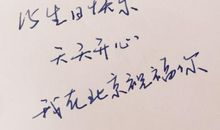 生日快乐
天天开心
我在北京祝福你